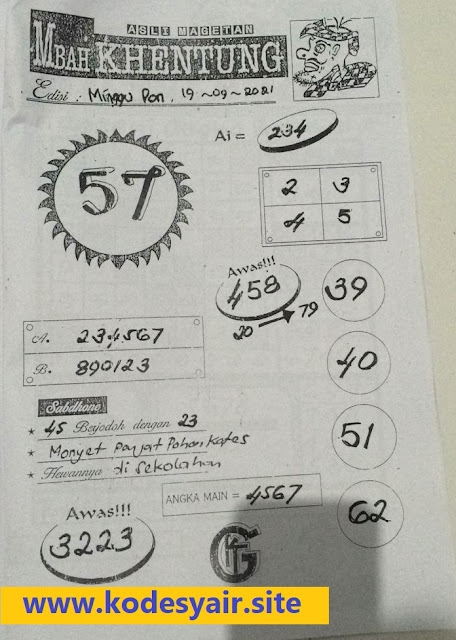 ASLI MAGETAN
MBAH KHENTUNG
Edisi : Minggu Pon, 19~09~2021
Ai = 234
57
2 3
4 5
Awas!!!
458
20 → 79
39
A. 234567
B. 890123
40
Sabdhone
★ 45 Berjodoh dengan 23
★ Monyet Panjat Pohon Kates
★ Hewannya di sekolahan
51
ANGKA MAIN = 4567
62
Awas!!!
3223
www.kodesyair.site